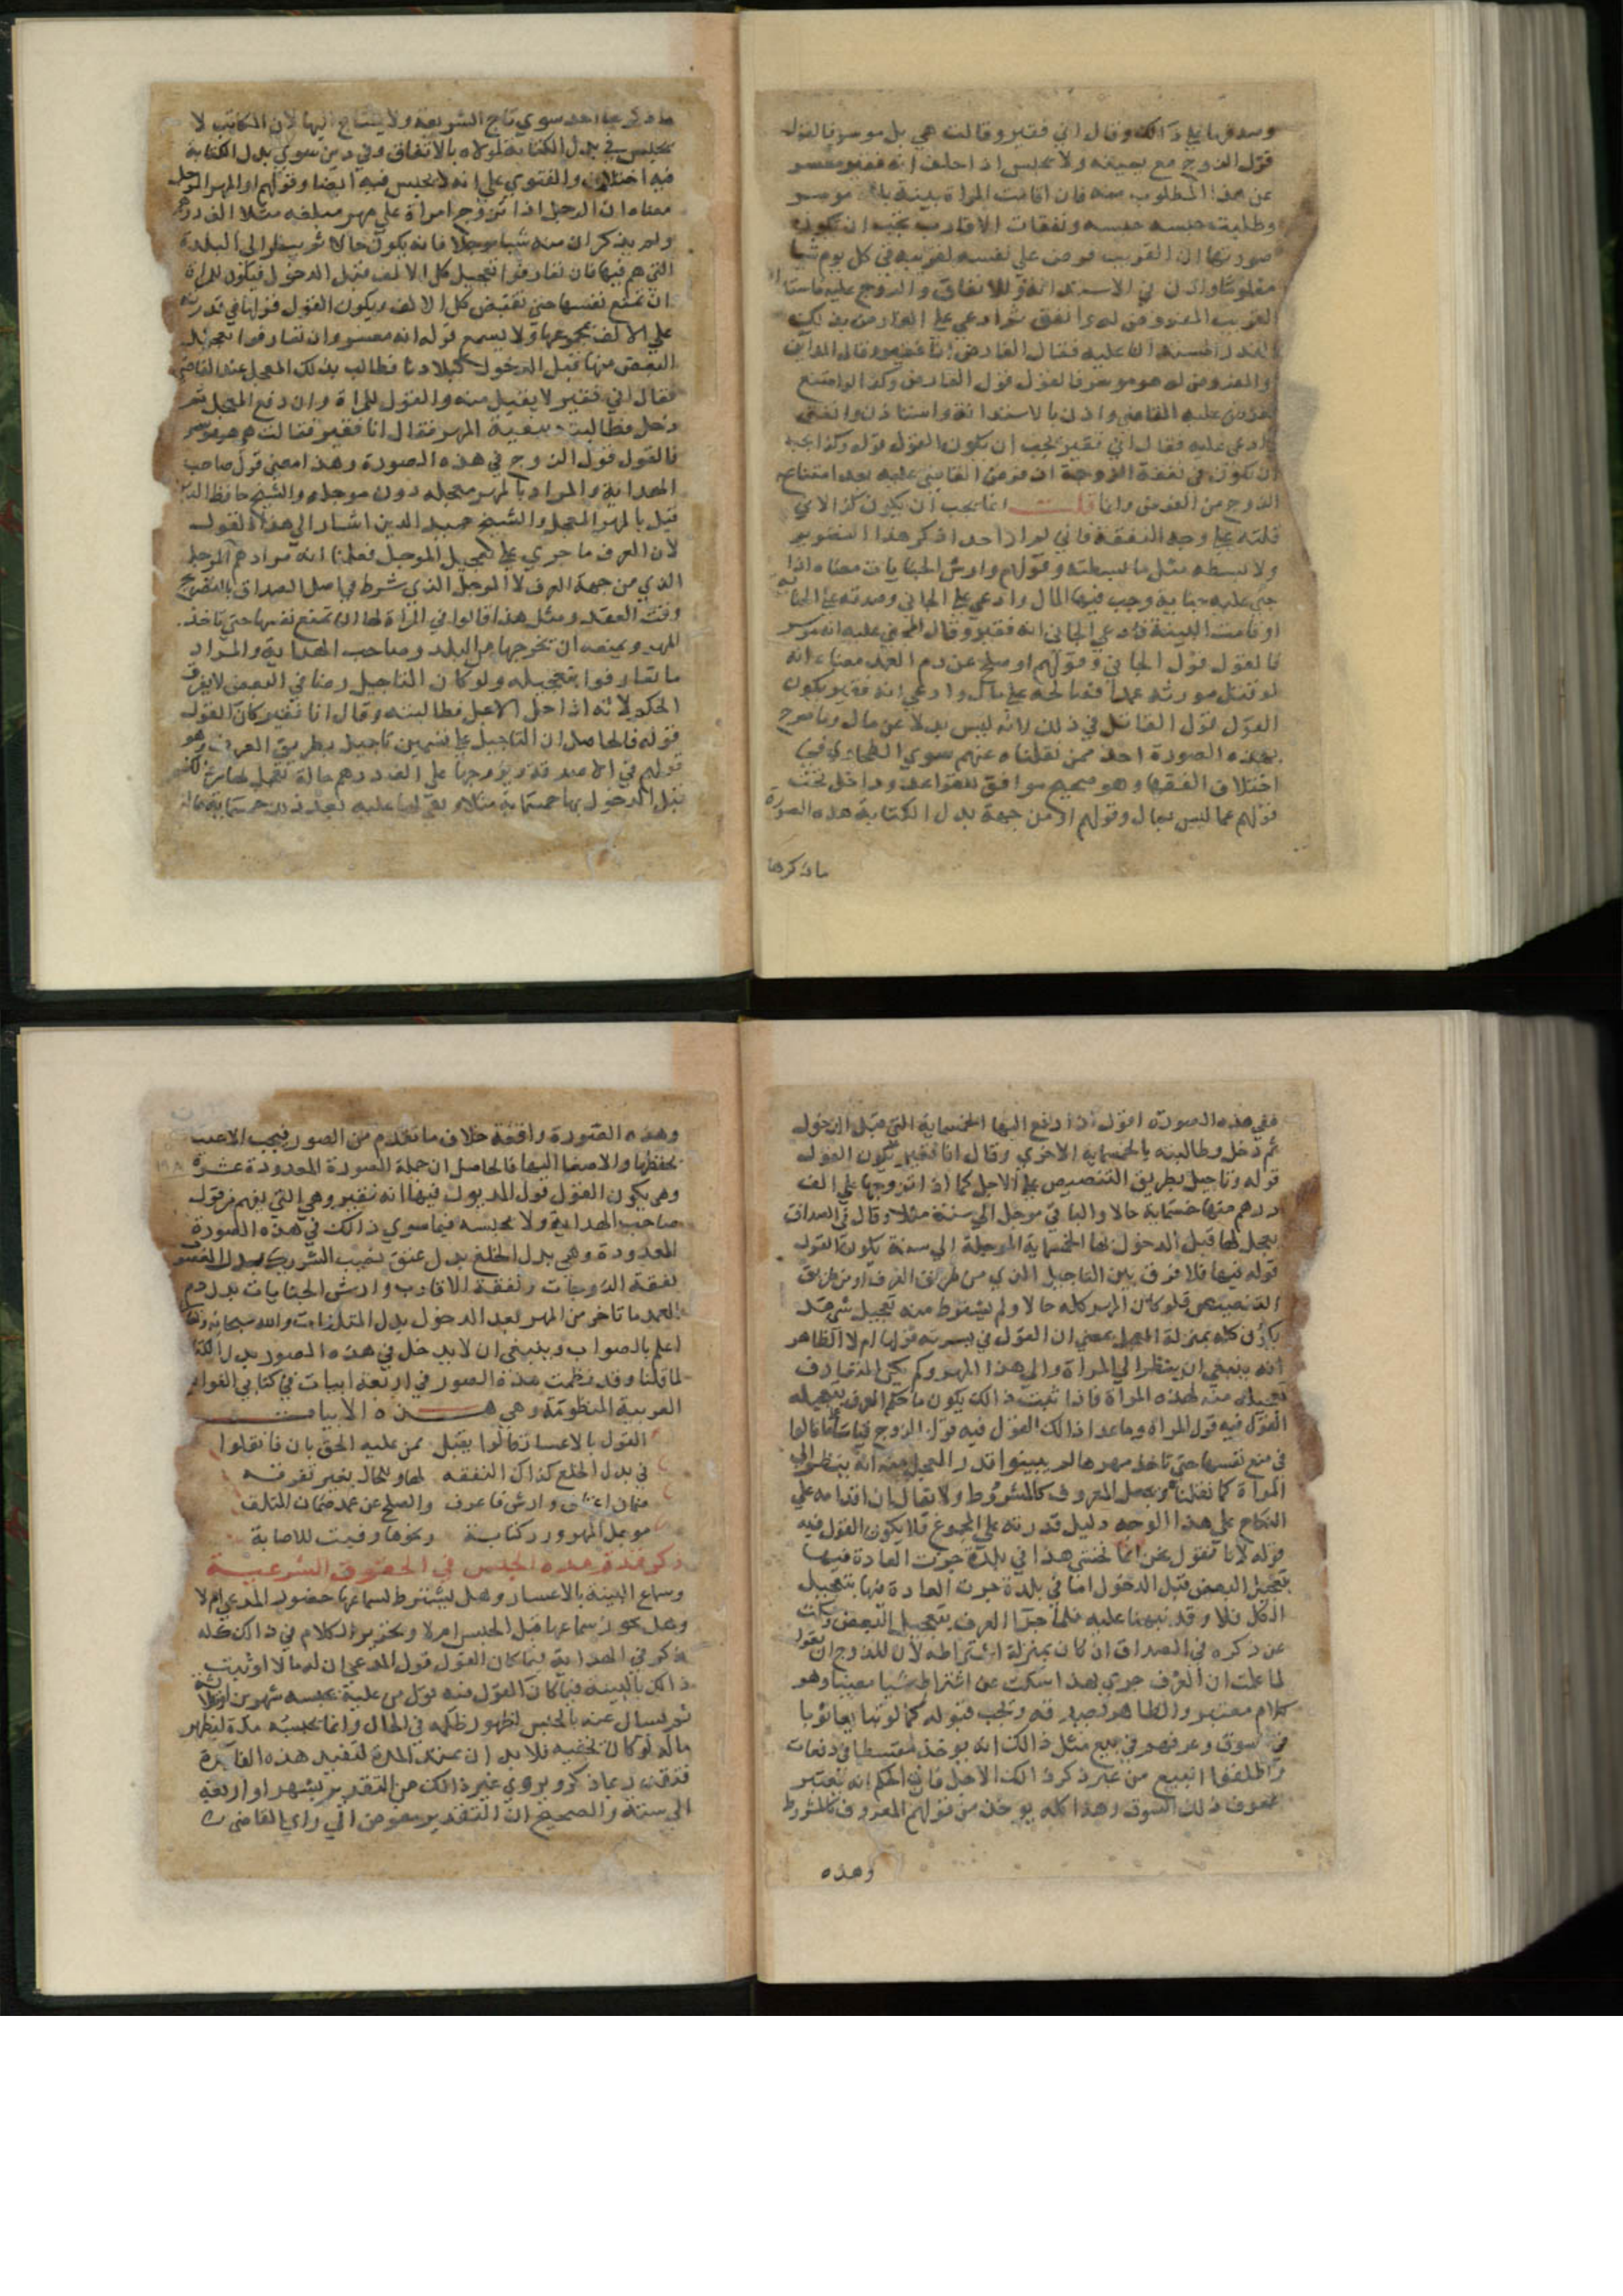 وصدقها علي ذالك وقال اني فقير وقالت هي بل موسر فالقول
قول الزوج مع يمينه ولا يحبس اذا حلف انه فقير معسر
عن هذا المطلوب منه فان اقامت المراة بينة بانه موسر
وطلبت حبسه حبسه ونفقات الاقارب يجب ان تكون
صورتها ان القريب فرض علي نفسه لقريبه في كل يوم شيا
معلوما واذن له في الاستدانة والانفاق والرجوع عليه فاستدان
القريب المفروض له وانفق ثم ادعي عليه الفارض بذلك
القدر المستدان عليه فقال الفارض انا فقير وقال المداين
والمفروض له هو موسر فالقول قول الفارض وكذا لو امتنع
ففرض عليه القاضي واذن بالاستدانة واستدان وانفق
وادعي عليه فقال اني فقير يجب ان يكون القول قوله وكذا يجب
ان تكون في نفقة الزوجة ان فرض القاضي عليه بعد امتناع
الزوج من الفرض وانما قلت انما يجب ان يكون كذا لاني
قلته علي وجه التفقه فاني لم ار احدا ذكر هذا التصوير
ولا بسطه مثل ما بسطته وقولهم وارش الجنايات معناه اذا
جني عليه جناية وجب فيها المال وادعي علي الجاني وصدقه علي الجناية
او قامت البينة فادعي الجاني انه فقير وقال المجني عليه انه موسر
فالقول قول الجاني وقولهم او صلح عن دم العمد معناه انه
لو قتل مورثه عمدا فصالحه علي مال وادعي انه فقير يكون
القول قول القاتل في ذلك لانه ليس بدلا عن مال وما صرح
بهذه الصورة احد ممن نقلناه عنهم سوي الطحاوي في
اختلاف الفقهاء وهو صحيح موافق للقواعد وداخل تحت
قولهم عما ليس بمال وقولهم او من جهة بدل الكتابة هذه الصورة
ما ذكرها
ما ذكرها احد سوي تاج الشريعة ولا يحتاج اليها لان المكاتب لا
يحبس في بدل الكتابة لمولاه بالاتفاق وفي دين سوي بدل الكتابة
فيه اختلاف والفتوي علي انه لا يحبس فيه ايضا وقولهم او المهر الموجل
معناه ان الرجل اذا تزوج امراة علي مهر مبلغه مثلا الف درهم
ولم يذكر ان منه شيا موجلا فانه يكون حالا ثم ينظر الي البلدة
التي هم فيها فان تعارفوا تعجيل كل الالف قبل الدخول فيكون للمراة
ان تمنع نفسها حتي تقبض كل الالف ويكون القول قولها في قدرته
علي الالف مجموعها ولا يسمع قوله انه معسر وان تعارفوا تعجيل
البعض منها قبل الدخول كبلادنا فطالب بذلك المعجل عند القاضي
فقال اني فقير لا يقبل منه والقول للمراة وان دفع المعجل ثم
دخل فطالبته ببقية المهر فقال انا فقير فقالت هو موسر
فالقول قول الزوج في هذه الصورة وهذا معني قول صاحب
الهداية والمراد بالمهر معجله دون موجله والشيخ حافظ الدين
قيل بالمهر المعجل والشيخ حميد الدين اشار الي هذا القول
لان العرف ما جري علي تعجيل الموجل فعلمنا انه مرادهم الموجل
الذي من جهة العرف لا الموجل الذي شرط في اصل الصداق بالتصريح
وقت العقد ومثل هذا قالوا في المراة لها ان تمنع نفسها حتي تاخذ
المهر ويمنعه ان تخرجها من البلد وصاحب الهداية والمراد
ما تعارفوا بتعجيله ولو كان التاجيل رضا في البعض لا يفرق
الحكم لانه اذا حل الاجل فطالبته وقال انا فقير كان القول
قوله فالحاصل ان التاجيل علي قسمين تاجيل بطريق العرف وهو
قولهم في الاصدقة ويزوجها علي الف درهم حالة تعجل لها من ذلك
قبل الدخول بها خمسماية مثلا ويبقي لها عليه بعد ذلك خمسماية حالة
ففي هذه الصورة اقول اذا دفع اليها الخمسماية التي قبل الدخول
ثم دخل وطالبته بالخمسماية الاخري وقال انا فقير يكون القول
قوله وتاجيل بطريق التنصيص علي الاجل كما اذا تزوجها علي الف
درهم منها خمسماية حالا والباقي موجل الي سنة مثلا وقال في الصداق
يعجل لها قبل الدخول لها الخمسماية الموجلة الي سنة يكون القول
قوله فيها فلا فرق بين التاجيل الذي من طريق العرف او من طريق
التنصيص فلو كان المهر كله حالا ولم يشترط منه تعجيل شي هل
يكون كله بمنزلة المعجل بمعني ان القول في يسرته قولها ام لا الظاهر
انه ينبغي ان ينظر الي المراة والي هذا المهر وكم يكون المتعارف
تعجيله منه لهذه المراة فاذا ثبت ذالك يكون ما حكم العرف بتعجيله
القول فيه قول المراة وما عدا ذالك القول فيه قول الزوج قياسا علي ما قالوا
في منع نفسها حتي تاخذ مهرها لم يبينوا قدر المعجل منه انه ينظر الي
المراة كما نقلناه ويجعل المعروف كالمشروط ولا يقال ان اقدامه علي
النكاح علي هذا الوجه دليل قدرته علي المجموع فلا يكون القول فيه
قوله لانا نقول نحن انما نحتني هذا في بلدة جرت العادة فيها
بتعجيل البعض قبل الدخول اما في بلدة جرت العادة فيها بتعجيل
الكل فلا وقد نبهنا عليه فلما جرا العرف بتعجيل البعض وسكت
عن ذكره في الصداق ان كان بمنزلة اشتراطه لان للزوج ان يقول
لما علمت ان العرف جري بهذا اسكت عن اشتراطه شيا معينا وهو
كلام معتبر والظاهر يصدقه ويجب قبوله كما لو تبايعا ثوبا
في سوق وعرفهم في بيع مثل ذالك انه يوخذ مقسطا في دفعات
واطلقا البيع من غير ذكر ذالك الاجل فان الحكم انه يعتبر
بعرف ذلك السوق وهذا كله يوخذ من قولهم المعروف كالمشروط
وهذه
وهذه الصورة واقعة خلاف ما تقدم من الصور فيجب الاعتنا
بحفظها والاصغا اليها فالحاصل ان جملة الصورة المعدودة عشرة
وهي يكون القول قول المديون فيها انه فقير وهي التي يفهم من قول
صاحب الهداية ولا يحبسه فيما سوي ذالك في هذه الصورة
المعدودة وهي بدل الخلع بدل عتق نصيب الشريك بدل المغصوب
نفقة الزوجات ونفقة الاقارب وارش الجنايات بدل دم
العمد ما تاخر من المهر بعد الدخول بدل المتلفات والله سبحانه وتعالي
اعلم بالصواب وينبغي ان لا يدخل في هذه الصور بدل الكتابة
لما قلنا وقد نظمت هذه الصور في اربعة ابيات في كتابي الفوايد
الغريبة المنظومة وهي هذه الابيات
القول بالاعسار قالوا يقبل ممن عليه الحق بان فانقلوا
في بدل الخلع كذاك النفقه لها وللحال بغير تفرقه
ضمان اعتاق وارش فاعرف والصلح عن عمد ضمان المتلف
موجل المهور رد كتابة ونحوها وفيت للاصابة
ذكر مدة هذه الحبس في الحقوق الشرعية
وسماع البينة بالاعسار وهل يشترط لسماعها حضور المدعي ام لا
وهل يجوز سماعها قبل الحبس ام لا وتحرير الكلام في ذالك كله
ذكر في الهداية فيما كان القول قول المدعي ان له مالا او ثبت
ذالك بالبينة فيما كان القول فيه قول من عليه يحبسه شهرين او ثلاثة
ثم يسال عنه بالحبس لظهور ظلمه في الحال وانما يحبسه مدة ليظهر
ماله لو كان يخفيه فلا بد ان يمتد المدة لتفيد هذه الفايدة
فقدرت بما ذكر ويروي غير ذالك من التقدير بشهر او اربعة
الي ستة والصحيح ان التقدير مفوض الي راي القاضي